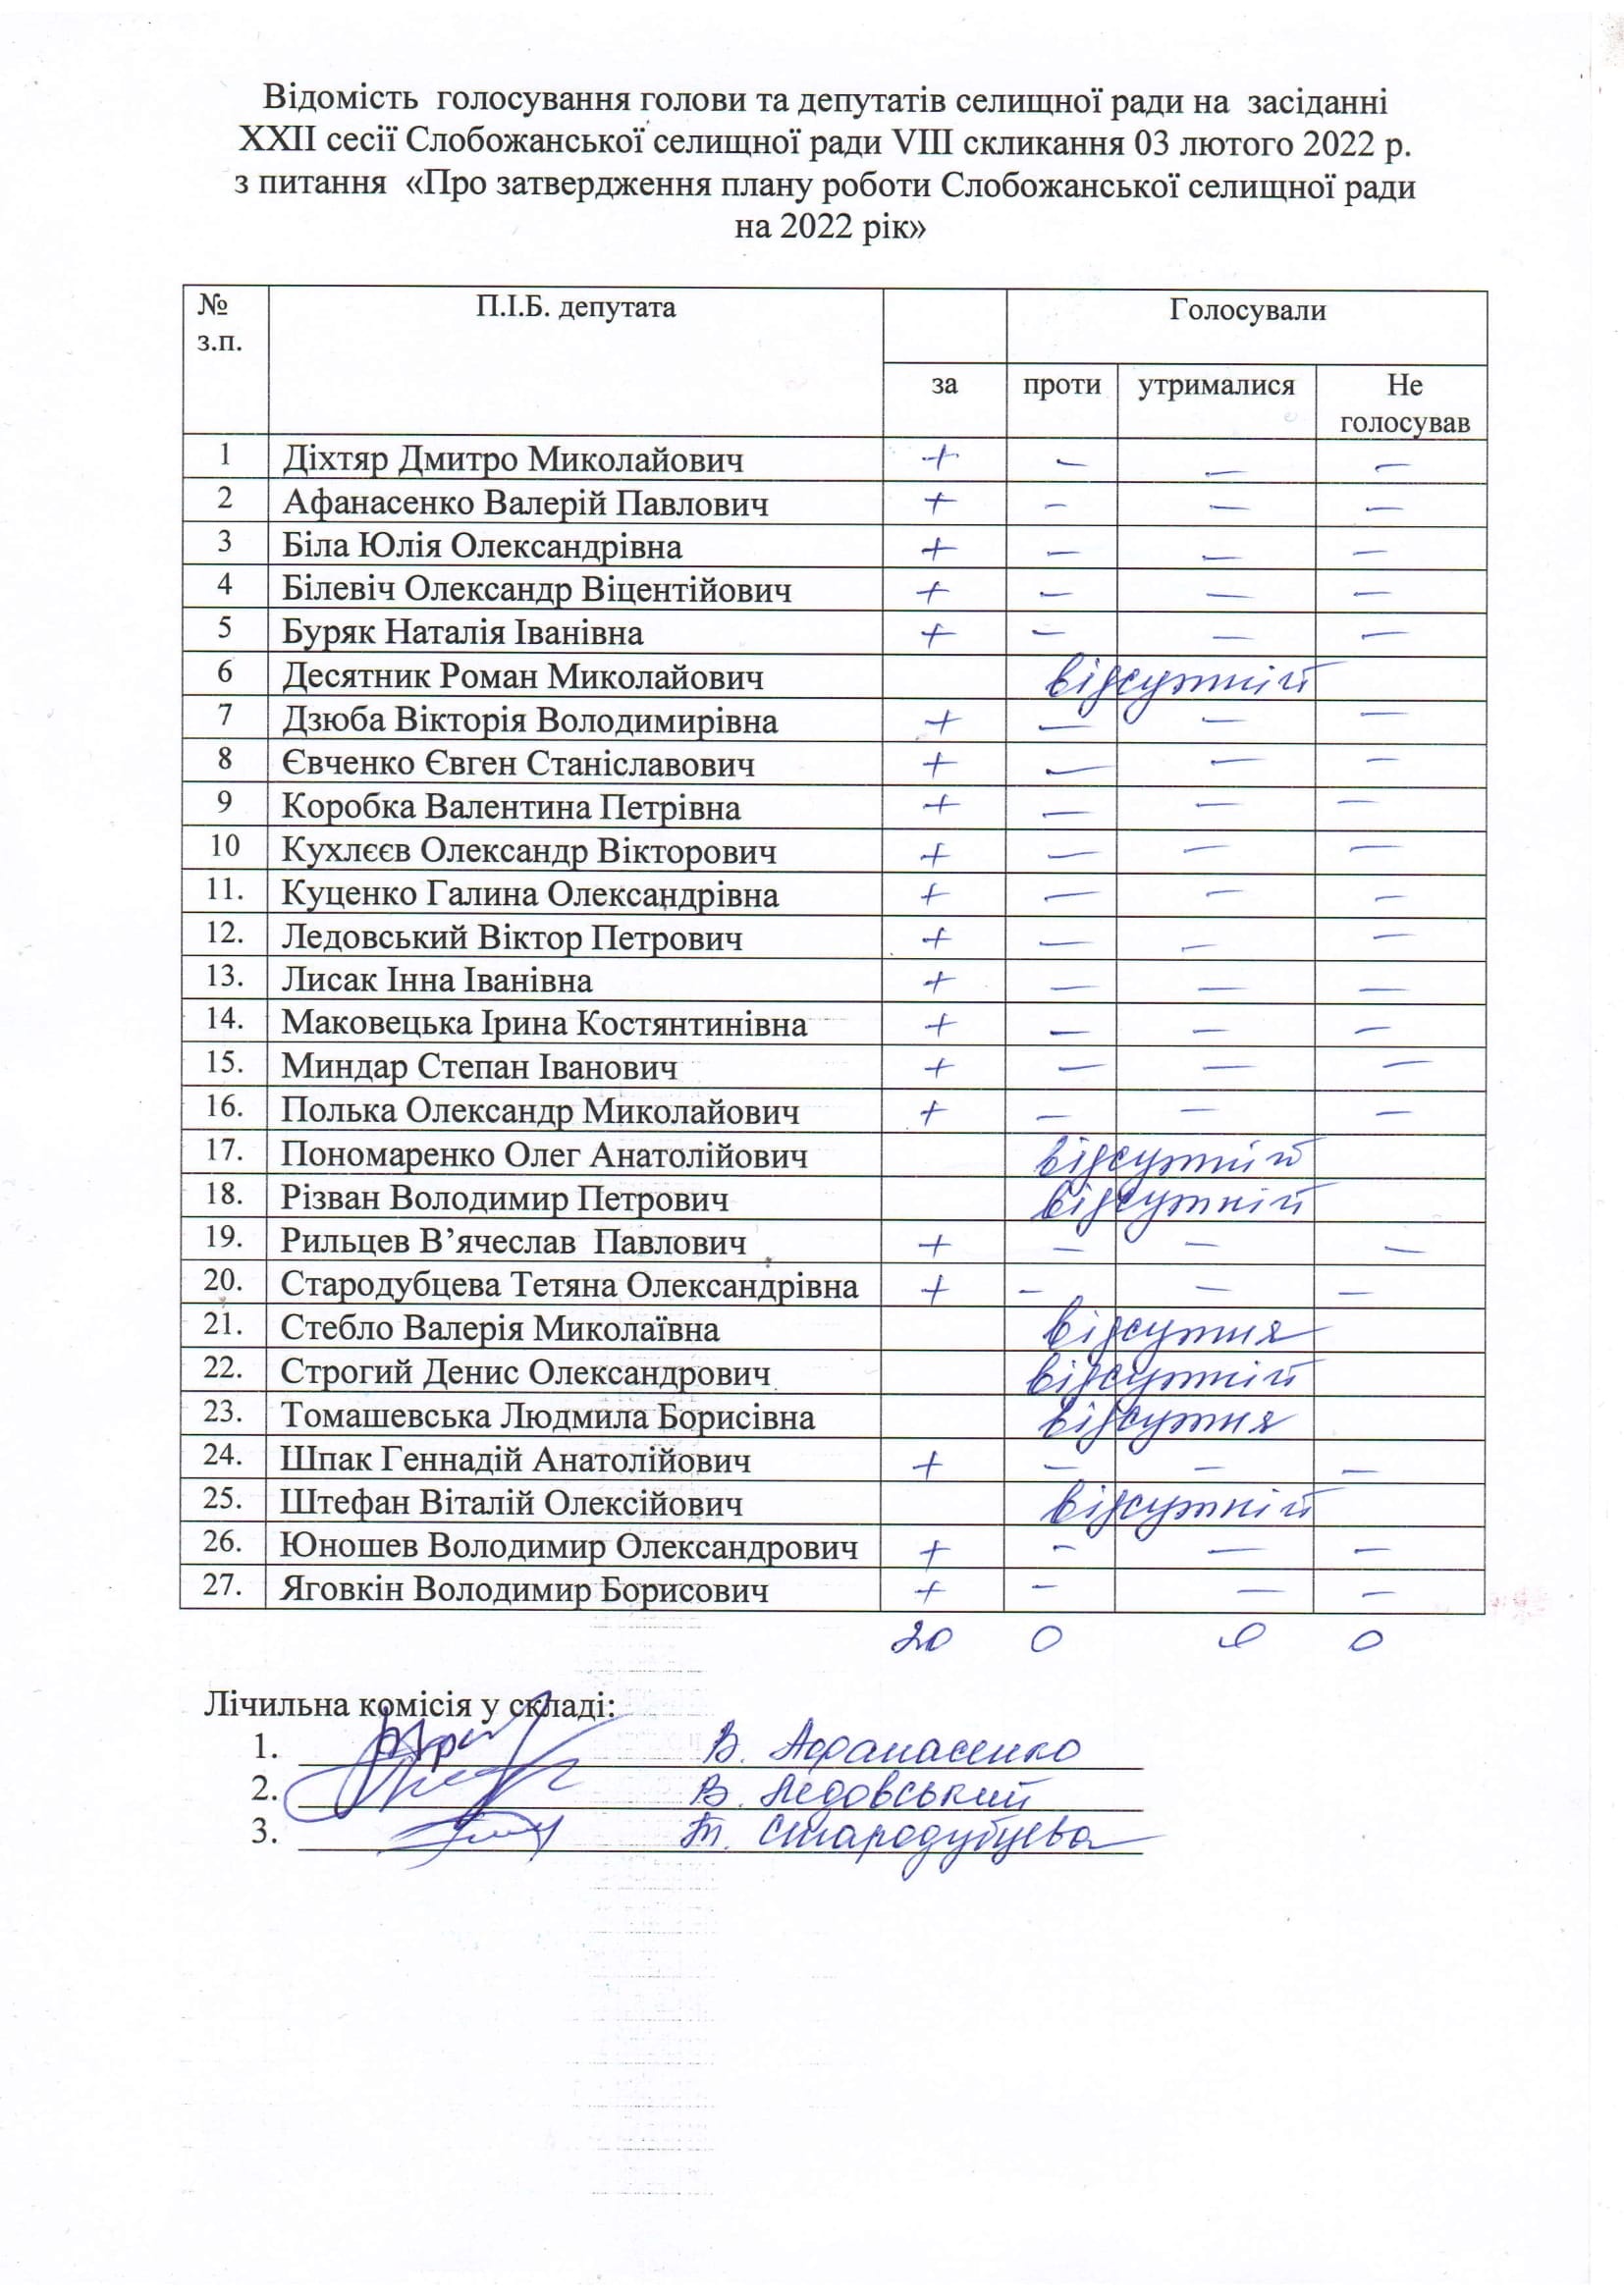 Відомість голосування голови та депутатів селищної ради на засіданні
XXII сесії Слобожанської селищної ради VIII скликання 03 лютого 2022 р.
з питання «Про затвердження плану роботи Слобожанської селищної ради
на 2022 рік»
№ з.п. П.І.Б. депутата Голосували
за проти утрималися Не голосував
1 Діхтяр Дмитро Миколайович + – – –
2 Афанасенко Валерій Павлович + – – –
3 Біла Юлія Олександрівна + – – –
4 Білевіч Олександр Віцентійович + – – –
5 Буряк Наталія Іванівна + – – –
6 Десятник Роман Миколайович відсутній
7 Дзюба Вікторія Володимирівна + – – –
8 Євченко Євген Станіславович + – – –
9 Коробка Валентина Петрівна + – – –
10 Кухлєєв Олександр Вікторович + – – –
11. Куценко Галина Олександрівна + – – –
12. Ледовський Віктор Петрович + – – –
13. Лисак Інна Іванівна + – – –
14. Маковецька Ірина Костянтинівна + – – –
15. Миндар Степан Іванович + – – –
16. Полька Олександр Миколайович + – – –
17. Пономаренко Олег Анатолійович відсутній
18. Різван Володимир Петрович відсутній
19. Рильцев В’ячеслав Павлович + – – –
20. Стародубцева Тетяна Олександрівна + – – –
21. Стебло Валерія Миколаївна відсутня
22. Строгий Денис Олександрович відсутній
23. Томашевська Людмила Борисівна відсутня
24. Шпак Геннадій Анатолійович + – – –
25. Штефан Віталій Олексійович відсутній
26. Юношев Володимир Олександрович + – – –
27. Яговкін Володимир Борисович + – – –
20 0 0 0
Лічильна комісія у складі:
1. В. Афанасенко
2. В. Ледовський
3. Т. Стародубцева